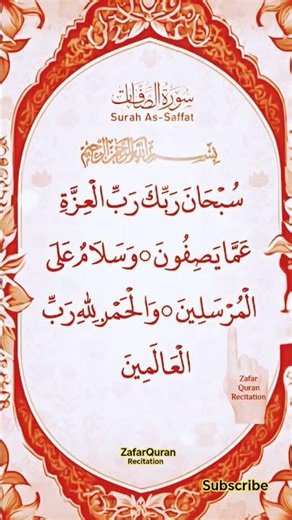 سورة الصافات
Surah As-Saffat
بسم الله الرحمن الرحيم
سُبْحَانَ رَبِّكَ رَبِّ الْعِزَّةِ
عَمَّا يَصِفُونَ ○ وَسَلَامٌ عَلَى
الْمُرْسَلِينَ ○ وَالْحَمْدُ لِلَّهِ رَبِّ
الْعَالَمِينَ
Zafar
Quran
Recitation
ZafarQuran
Recitation
Subscribe